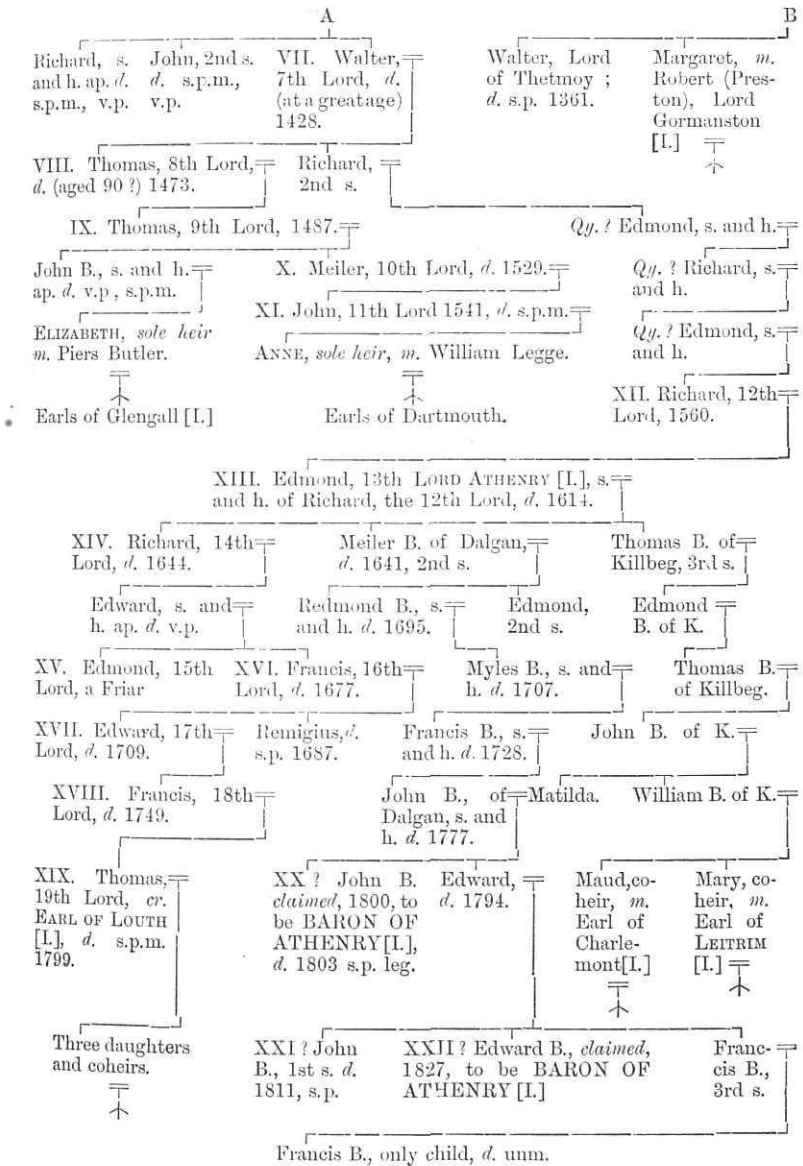 A
B
Richard, s.
and h. ap. d.
s.p.m., v.p.
John, 2nd s.
d. s.p.m.,
v.p.
VII. Walter,
7th Lord, d.
(at a great age)
1428.
Walter, Lord
of Thetmoy ;
d. s.p. 1361.
Margaret, m.
Robert (Pres-
ton), Lord
Gormanston
[I.]
VIII. Thomas, 8th Lord,
d. (aged 90 ?) 1473.
Richard,
2nd s.
IX. Thomas, 9th Lord, 1487.
Qy. ? Edmond, s. and h.
John B., s. and h.
ap. d. v.p , s.p.m.
X. Meiler, 10th Lord, d. 1529.
Qy. ? Richard, s.
and h.
XI. John, 11th Lord 1541, d. s.p.m.
ELIZABETH, sole heir
m. Piers Butler.
ANNE, sole heir, m. William Legge.
Qy. ? Edmond, s.
and h.
Earls of Glengall [I.]
Earls of Dartmouth.
XII. Richard, 12th
Lord, 1560.
XIII. Edmond, 13th LORD ATHENRY [I.], s.
and h. of Richard, the 12th Lord, d. 1614.
XIV. Richard, 14th
Lord, d. 1644.
Meiler B. of Dalgan,
d. 1641, 2nd s.
Thomas B. of
Killbeg, 3rd s.
Edward, s. and
h. ap. d. v.p.
Redmond B., s.
and h. d. 1695.
Edmond,
2nd s.
Edmond
B. of K.
XV. Edmond, 15th
Lord, a Friar
XVI. Francis, 16th
Lord, d. 1677.
Myles B., s. and
h. d. 1707.
Thomas B.
of Killbeg.
XVII. Edward, 17th
Lord, d. 1709.
Remigius, d.
s.p. 1687.
Francis B., s.
and h. d. 1728.
John B. of K.
XVIII. Francis, 18th
Lord, d. 1749.
John B., of
Dalgan, s. and
h. d. 1777.
Matilda.
William B. of K.
XIX. Thomas,
19th Lord, cr.
EARL OF LOUTH
[I.], d. s.p.m.
1799.
XX ? John B.
claimed, 1800, to
be BARON OF
ATHENRY [I.],
d. 1803 s.p. leg.
Edward,
d. 1794.
Maud, co-
heir, m.
Earl of
Charle-
mont [I.]
Mary, co-
heir, m.
Earl of
LEITRIM
[I.]
Three daughters
and coheirs.
XXI ? John
B., 1st s. d.
1811, s.p.
XXII ? Edward B., claimed,
1827, to be BARON OF
ATHENRY [I.]
Franc-
cis B.,
3rd s.
Francis B., only child, d. unm.